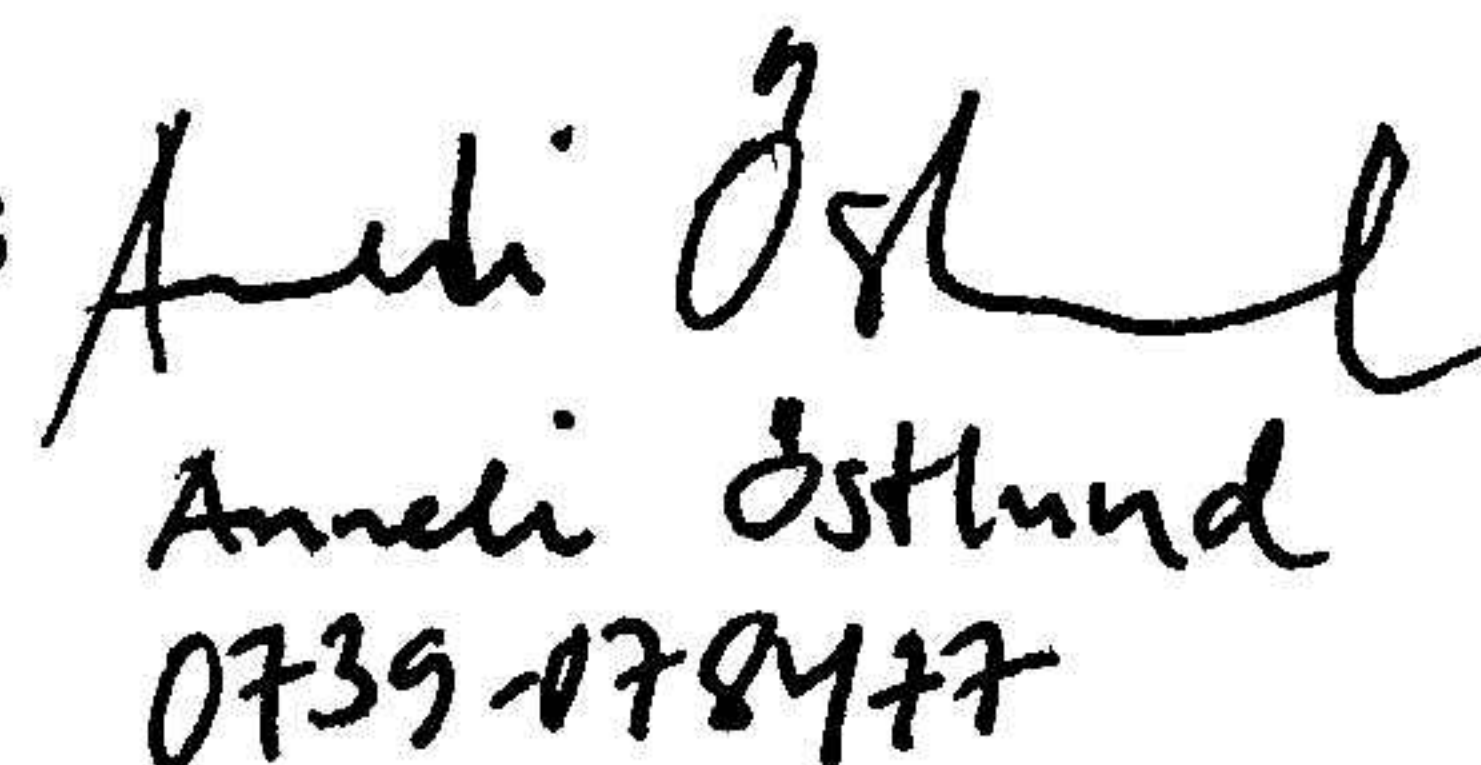 Anneli Östlund
Anneli Östlund
0739-078477